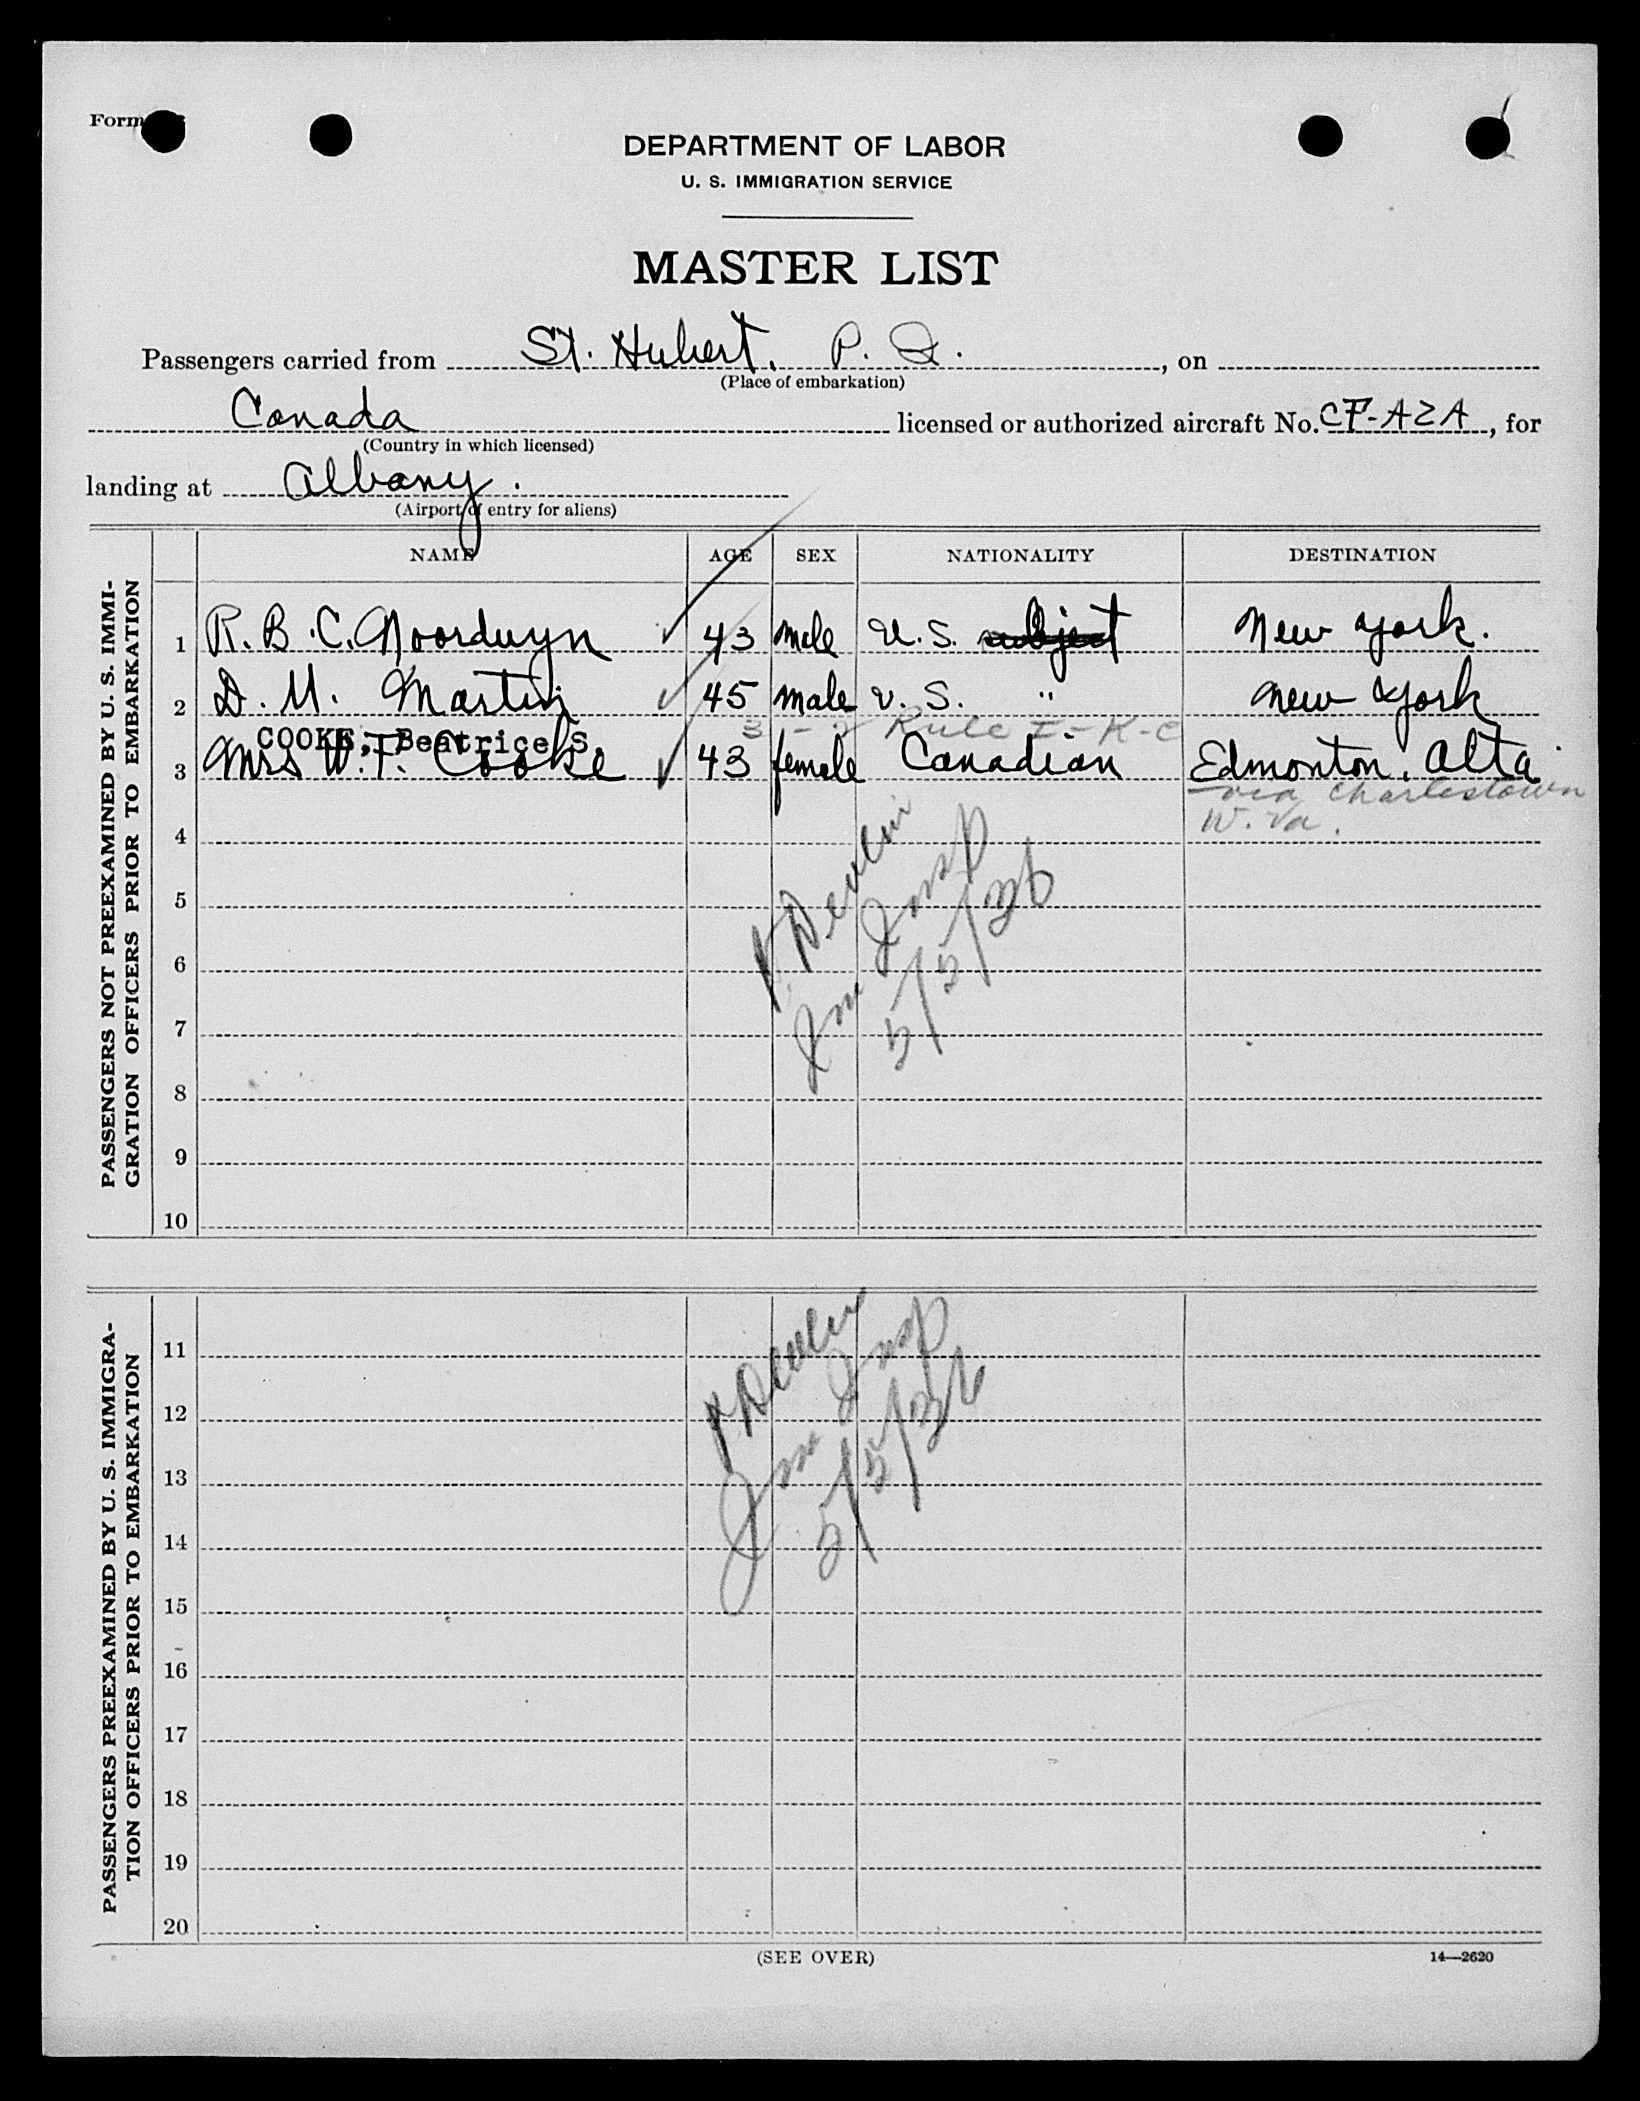 Form
DEPARTMENT OF LABOR
U. S. IMMIGRATION SERVICE
MASTER LIST
Passengers carried from St. Hubert, P. Q. , on
(Place of embarkation)
Canada licensed or authorized aircraft No. CF-AZA, for
(Country in which licensed)
landing at Albany.
(Airport of entry for aliens)
PASSENGERS NOT PREEXAMINED BY U. S. IMMI-
GRATION OFFICERS PRIOR TO EMBARKATION
NAME AGE SEX NATIONALITY DESTINATION
1 R. B. C. Noorduyn 43 male U. S. subject New York.
2 D. M. Martin 45 male U. S. " New York
COOKE, Beatrice S. 3 - 2 Rule I-K-C
3 Mrs W. T. Cooke 43 female Canadian Edmonton, Alta
via Charlestown
W. Va.
4
5
6
7
8
9
10
P. Devlin
Imm Insp
5/5/36
PASSENGERS PREEXAMINED BY U. S. IMMIGRA-
TION OFFICERS PRIOR TO EMBARKATION
11
12
13
14
15
16
17
18
19
20
P. Devlin
Imm Insp
5/5/36
(SEE OVER)
14—2620